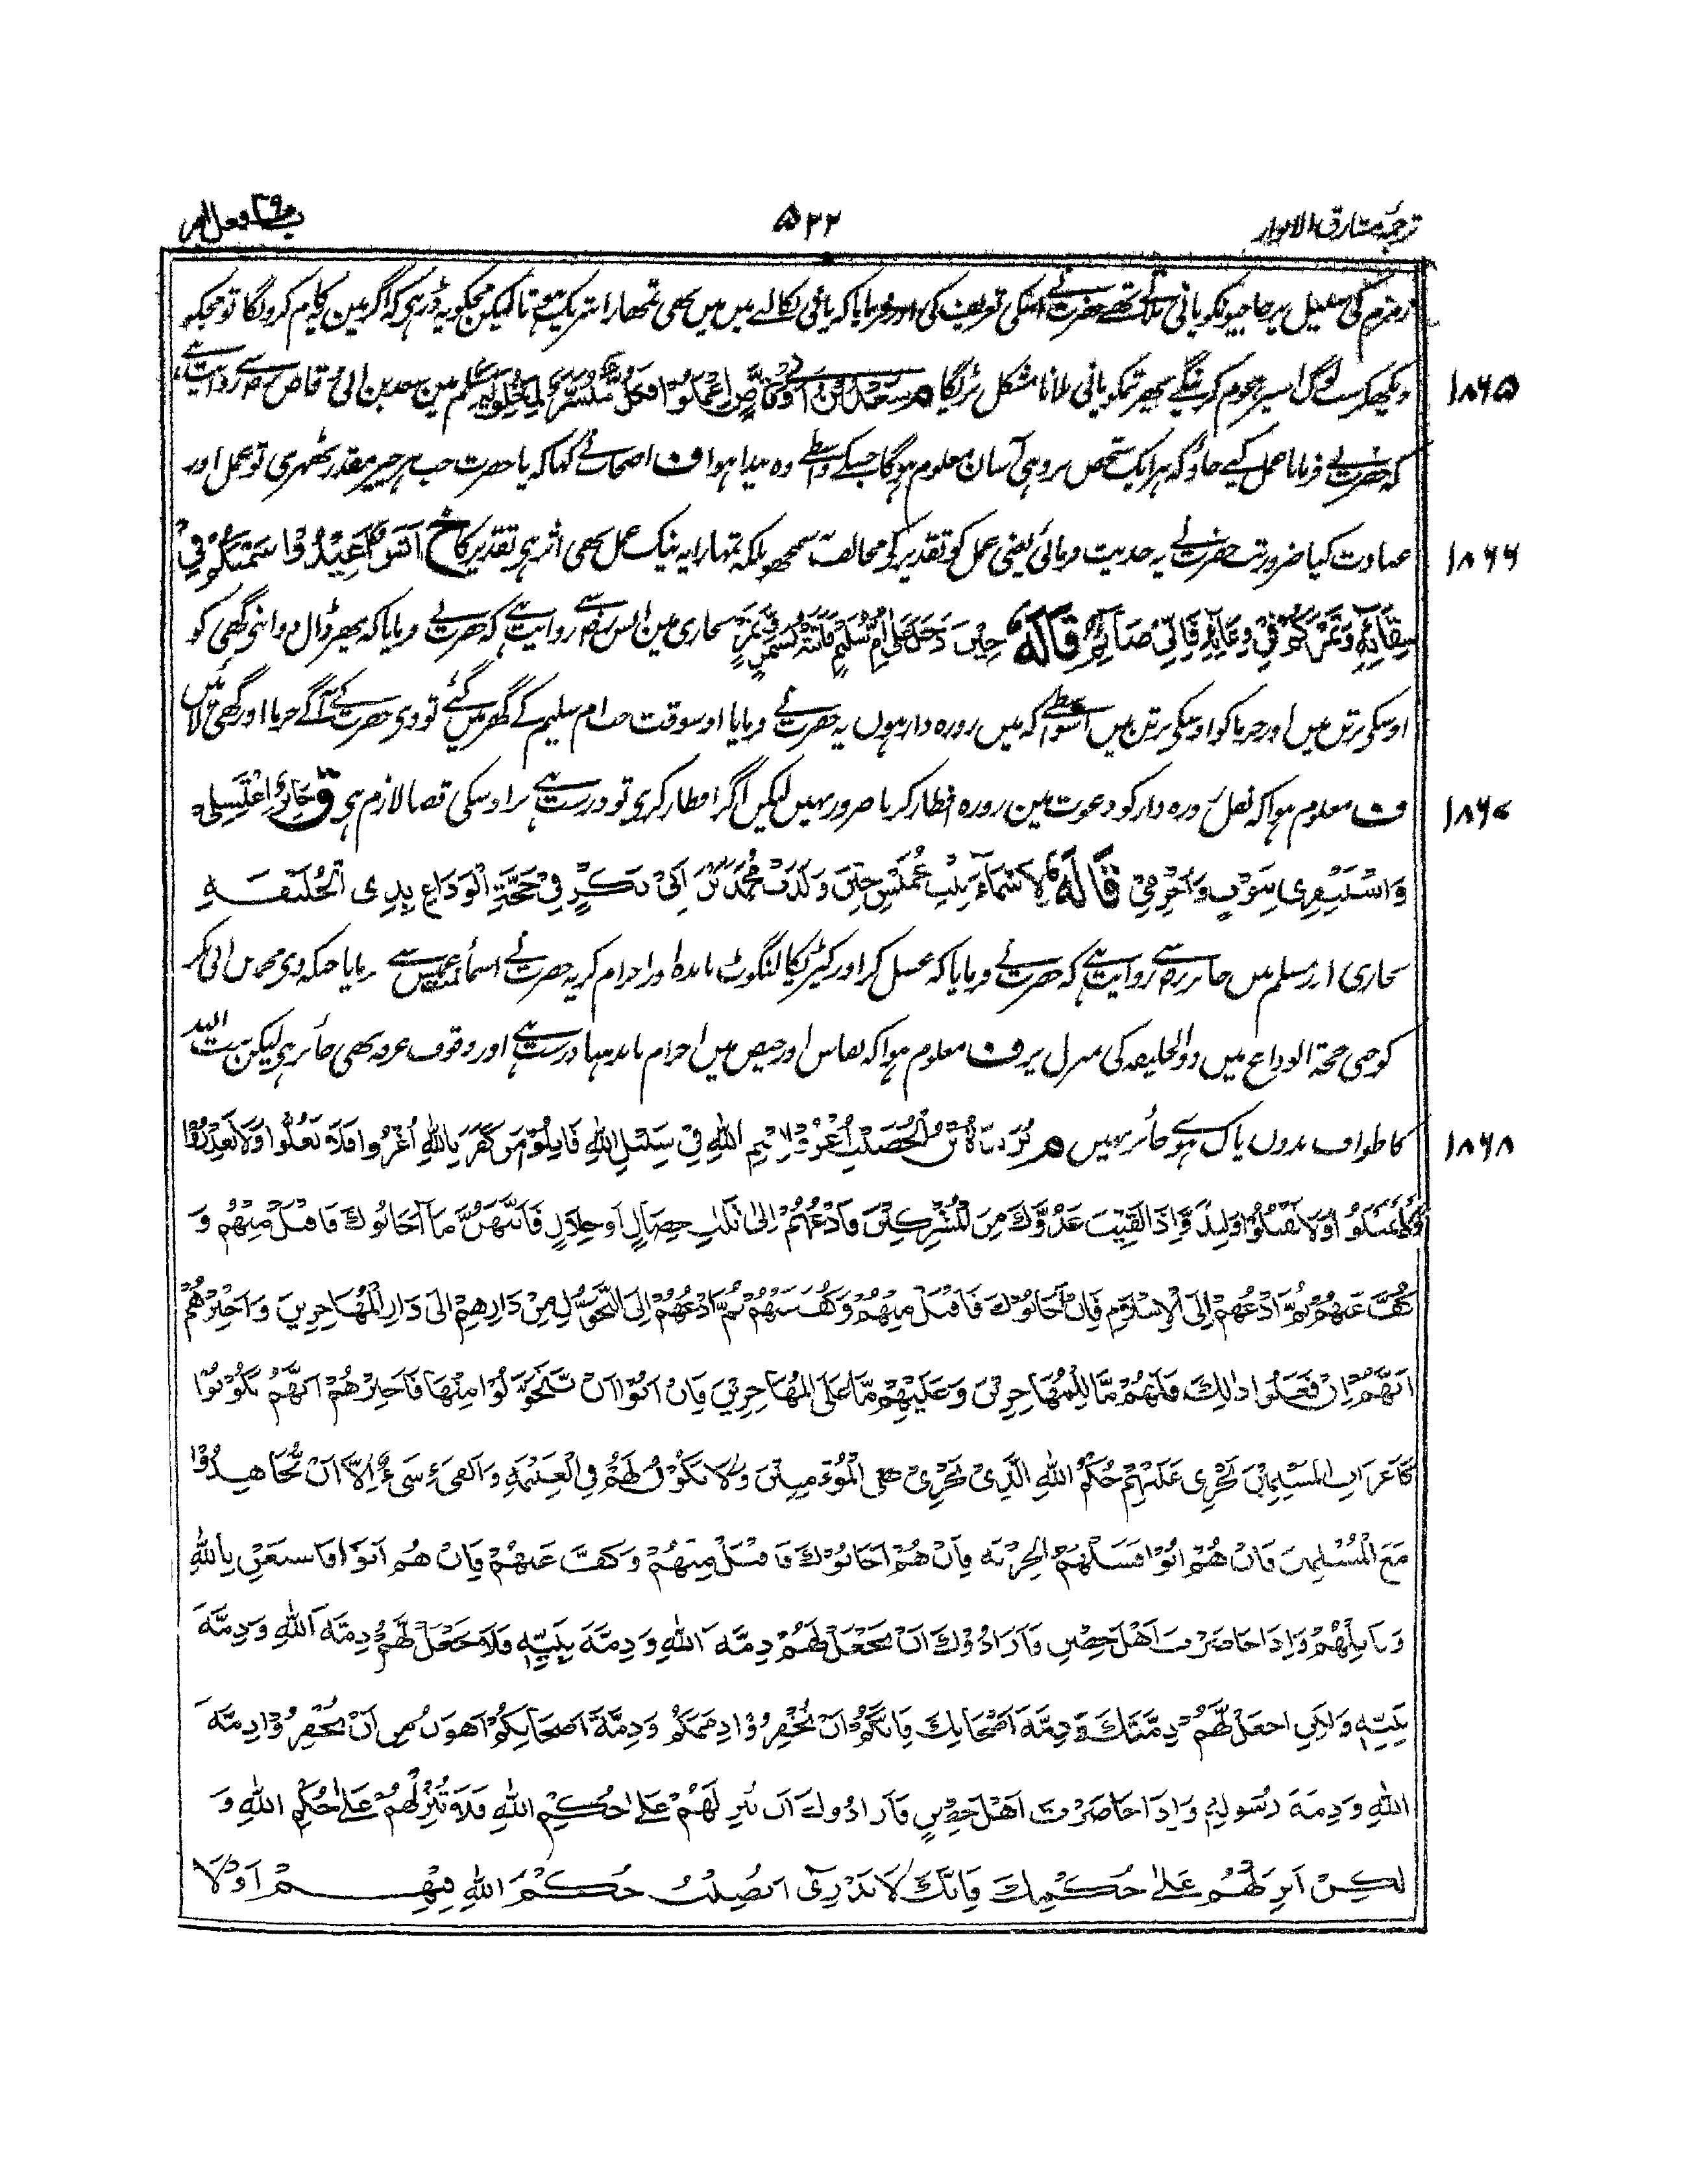 ترجمہ مشارق الانوار ۵۲۲ باب ۳۹ فعل امر
زمزم کی سبیل پر حاجیونکو پانی پلاتے تھے حضرت نے اسکی تعریف کی اور فرمایا کہ پانی نکالنے میں میں بھی تمھارا شریک ہوتا لیکن مجکو یہ ڈر ہی کہ اگر مین یہ کام کرونگا تو مجکو
۱۸۶۵ دیکھکر سب لوگ اسپر ہجوم کرینگے پھر تمکو پانی پلانا مشکل پڑیگا م سعد بن ابی وقاص اعملوا فکل میسر لما خلق له مسلم مین سعد بن ابی وقاص سے روایت ہے
کہ حضرت نے فرمایا عمل کیے جاؤ کہ ہر ایک شخص پر وہی آسان معلوم ہوگا جسکے واسطے وہ پیدا ہوا ف اصحاب نے کہا کہ یا حضرت جب ہر چیز مقدر ٹھہری تو عمل اور
۱۸۶۶ عبادت کیا ضرور تب حضرت نے یہ حدیث فرمائی یعنی عمل کو تقدیر کی مخالف نہ سمجھو بلکہ تمہارا یہ نیک عمل بھی اثر ہی تقدیر کا خ انس اعيدوا سمنكم في
سقائه وتمركم في وعائه فاني صائم قاله حين دخل على ام سليم فاتته بسمن وتمر بخاری مین انس سے روایت ہے کہ حضرت نے فرمایا کہ پھر ڈال دو اپنی گھی کو
اوسکی برتن میں اور خرما کو اوسکی برتن میں اسواسطے کہ میں روزہ دار ہوں یہ حضرت نے فرمایا اوسوقت جب ام سلیم کے گھر میں گئے تو وی حضرت کے آگے خرما اور گھی لائیں
۱۸۶۷ ف معلوم ہوا کہ نفل روزہ دار کو دعوت مین روزہ افطار کرنا ضرور نہیں لیکن اگر افطار کری تو درست ہے پر اوسکی قضا لازم ہی ق جابر اغتسلي
واستثفري بثوب واحرمي قاله لاسماء بنت عميس حين ولدت محمد بن ابي بكر في حجة الوداع بذي الحليفة
بخاری اور مسلم میں جابر سے روایت ہے کہ حضرت نے فرمایا کہ غسل کر اور کپڑیکا لنگوٹ باندہ اور احرام کر یہ حضرت نے اسماء بنت عمیس سے فرمایا جبکہ وی محمد بن ابی بکر
کو جنی حجۃ الوداع میں ذو الحلیفہ کی منزل پر ف معلوم ہوا کہ نفاس اور حیض میں احرام باندہنا درست ہے اور وقوف عرفہ بھی جائز ہی لیکن بیت اللہ
۱۸۶۸ کا طواف بدون پاک ہوئے جائز نہیں م بريدة بن الحصيب اغزوا باسم الله في سبيل الله قاتلوا من كفر بالله اغزوا فلا تغلوا ولا تغدروا
ولا تمثلوا ولا تقتلوا وليدا واذا لقيت عدوك من المشركين فادعهم الى ثلث خصال او خلال فايتهن ما اجابوك فاقبل منهم و
كف عنهم ثم ادعهم الى الاسلام فان اجابوك فاقبل منهم وكف عنهم ثم ادعهم الى التحول من دارهم الى دار المهاجرين واخبرهم
انهم ان فعلوا ذلك فلهم ما للمهاجرين وعليهم ما على المهاجرين فان ابوا ان يتحولوا منها فاخبرهم انهم يكونون
كاعراب المسلمين يجري عليهم حكم الله الذي يجري على المؤمنين ولا يكون لهم في الغنيمة والفيء شيء الا ان يجاهدوا
مع المسلمين فان هم ابوا فسلهم الجزية فان هم اجابوك فاقبل منهم وكف عنهم فان هم ابوا فاستعن بالله
وقاتلهم واذا حاصرت اهل حصن فارادوك ان تجعل لهم ذمة الله وذمة نبيه فلا تجعل لهم ذمة الله وذمة
نبيه ولكن اجعل لهم ذمتك وذمة اصحابك فانكم ان تخفروا ذممكم وذمة اصحابكم اهون من ان تخفروا ذمة
الله وذمة رسوله واذا حاصرت اهل حصن فارادوك ان تنزلهم على حكم الله فلا تنزلهم على حكم الله و
لكن انزلهم على حكمك فانك لا تدري اتصيب حكم الله فيهم او لا